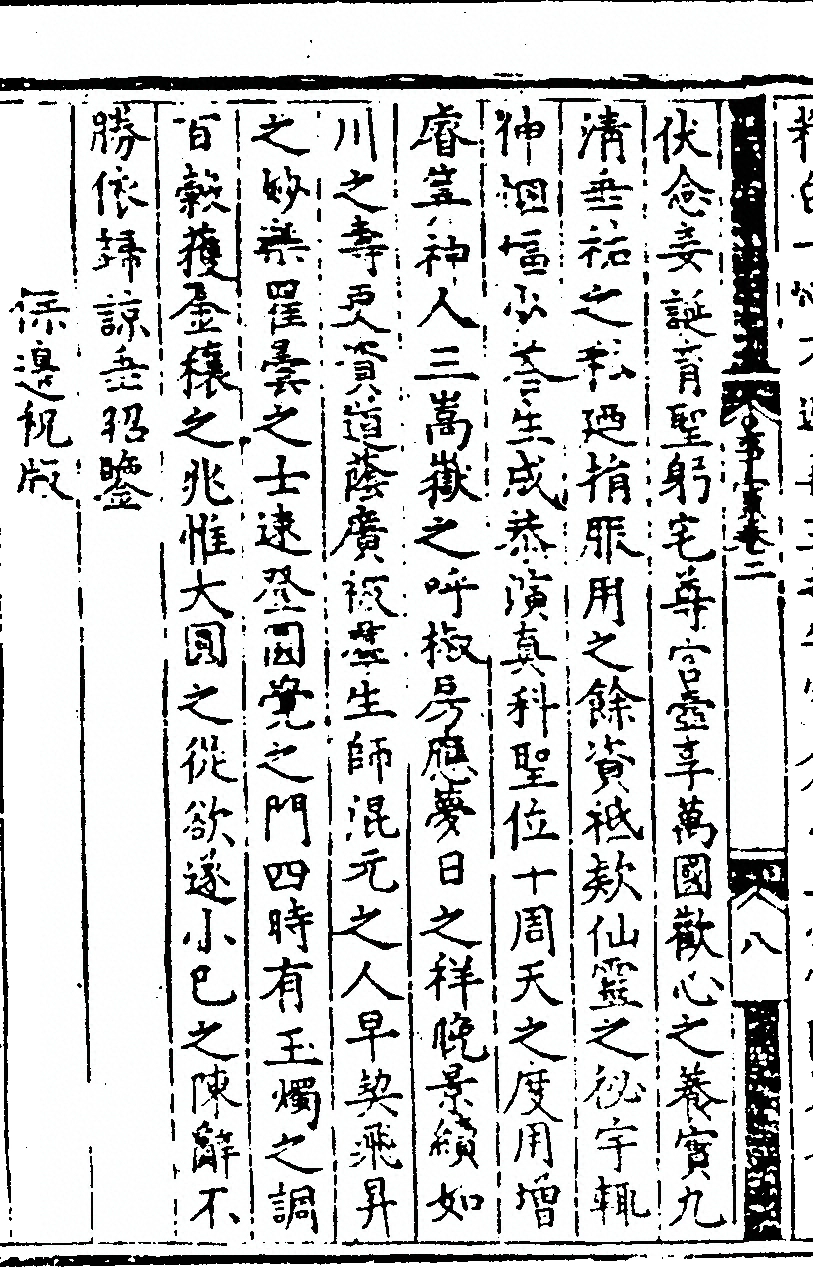 伏念妾誕育聖躬宅尊宮壼享萬國歡心之養實九
清垂祐之私廼捐服用之餘資祗欵仙靈之祕宇輒
伸悃愊少荅生成恭演真科聖位十周天之度用增
睿筭神人三嵩嶽之呼椒房應夢日之祥晚景績如
川之壽更資道蔭廣被羣生師混元之人早契飛昇
之妙樂瞿曇之士逮登圓覺之門四時有玉燭之調
百穀獲金穰之兆惟大圓之從欲遂小巳之陳辭不
勝依歸諒垂昭鑒
保邊祝版
卷二
八